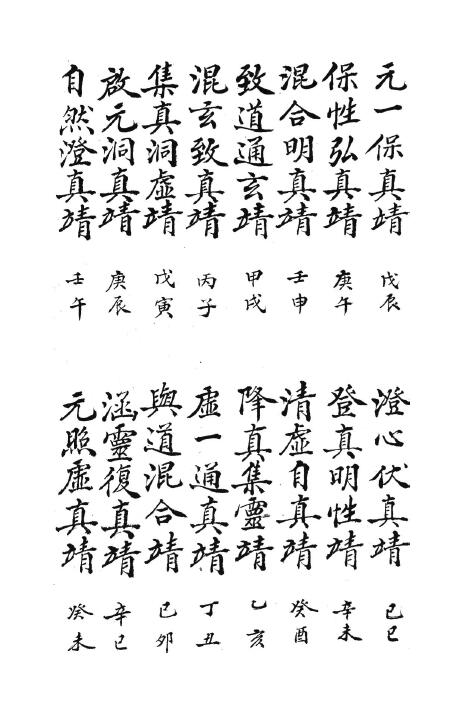 元一保真靖 戊辰 澄心伏真靖 己巳
保性弘真靖 庚午 登真明性靖 辛未
混合明真靖 壬申 清虛自真靖 癸酉
致道通玄靖 甲戌 降真集靈靖 乙亥
混玄致真靖 丙子 虛一通真靖 丁丑
集真洞虛靖 戊寅 與道混合靖 己卯
啟元洞真靖 庚辰 涵靈復真靖 辛巳
自然澄真靖 壬午 元照虛真靖 癸未